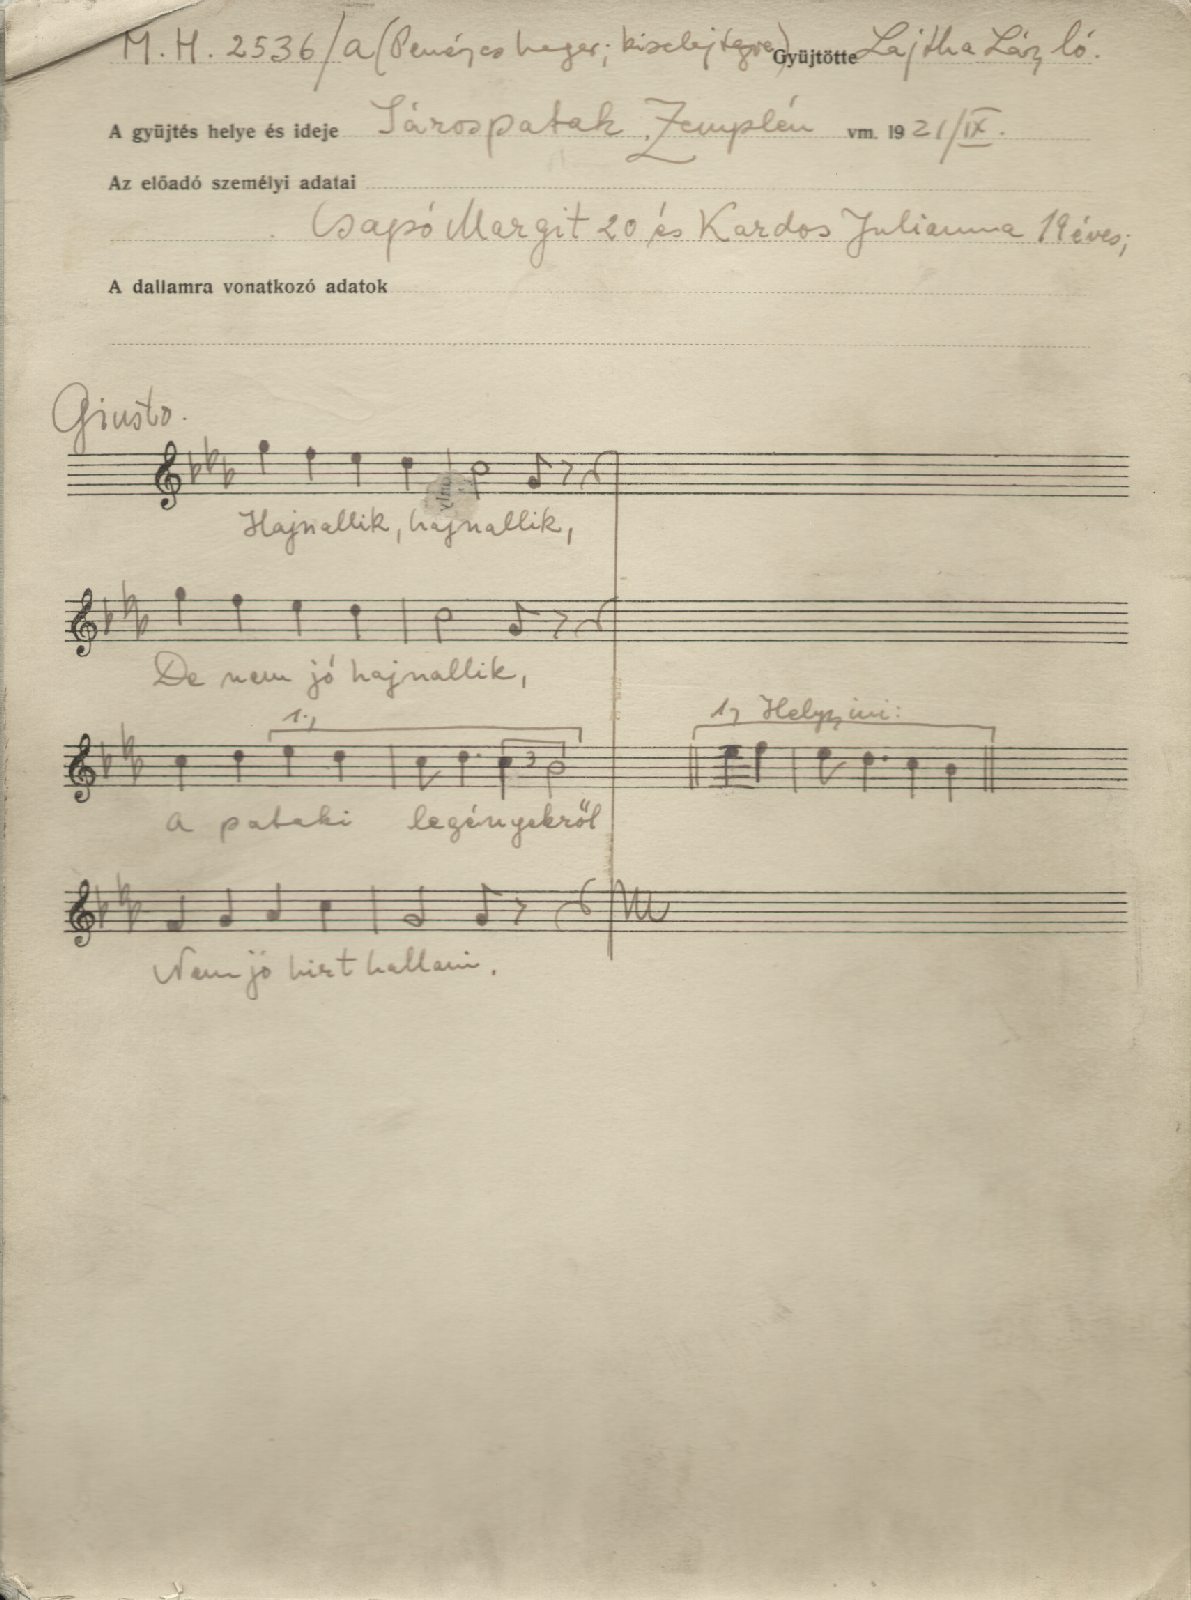 M. H. 2536/a (Penészes henger; kiselejtezve) Gyűjtötte Lajtha László.
A gyűjtés helye és ideje Sárospatak, Zemplén vm. 1921/IX.
Az előadó személyi adatai
Csapó Margit 20 és Kardos Julianna 19 éves;
A dallamra vonatkozó adatok
Giusto.
Hajnallik, hajnallik,
De nem jó hajnallik,
1., 1, Helyszíni:
3
A pataki legényekről
Nem jó hirt hallani.